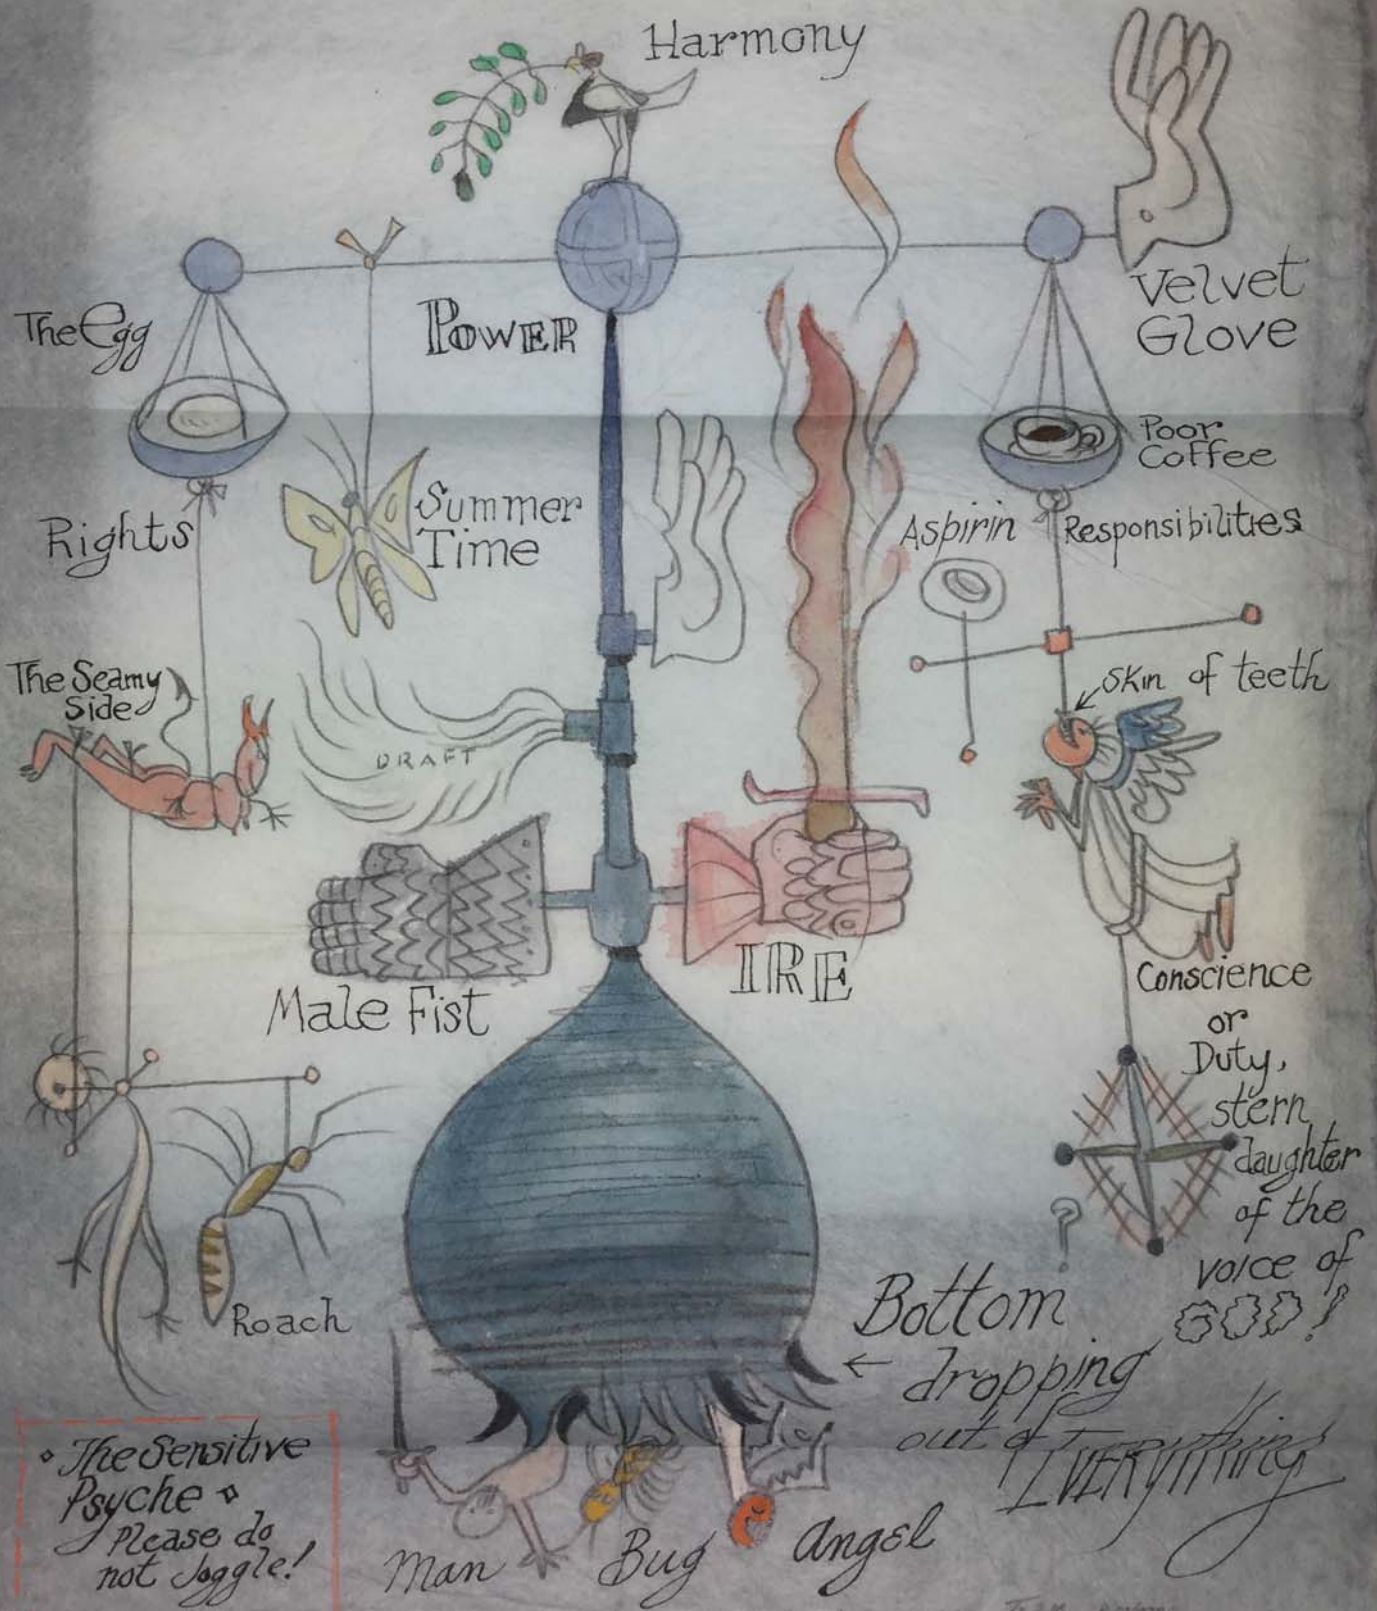 Harmony
Velvet
Glove
The Egg
POWER
Poor
Coffee
Rights
Summer
Time
Aspirin
Responsibilities
The Seamy
Side
skin of teeth
DRAFT
Male Fist
IRE
Conscience
or
Duty,
stern
daughter
of the
voice of
GOD!
?
Roach
Bottom
dropping
out of
EVERYthing
The Sensitive
Psyche
Please do
not Joggle!
Man
Bug
Angel